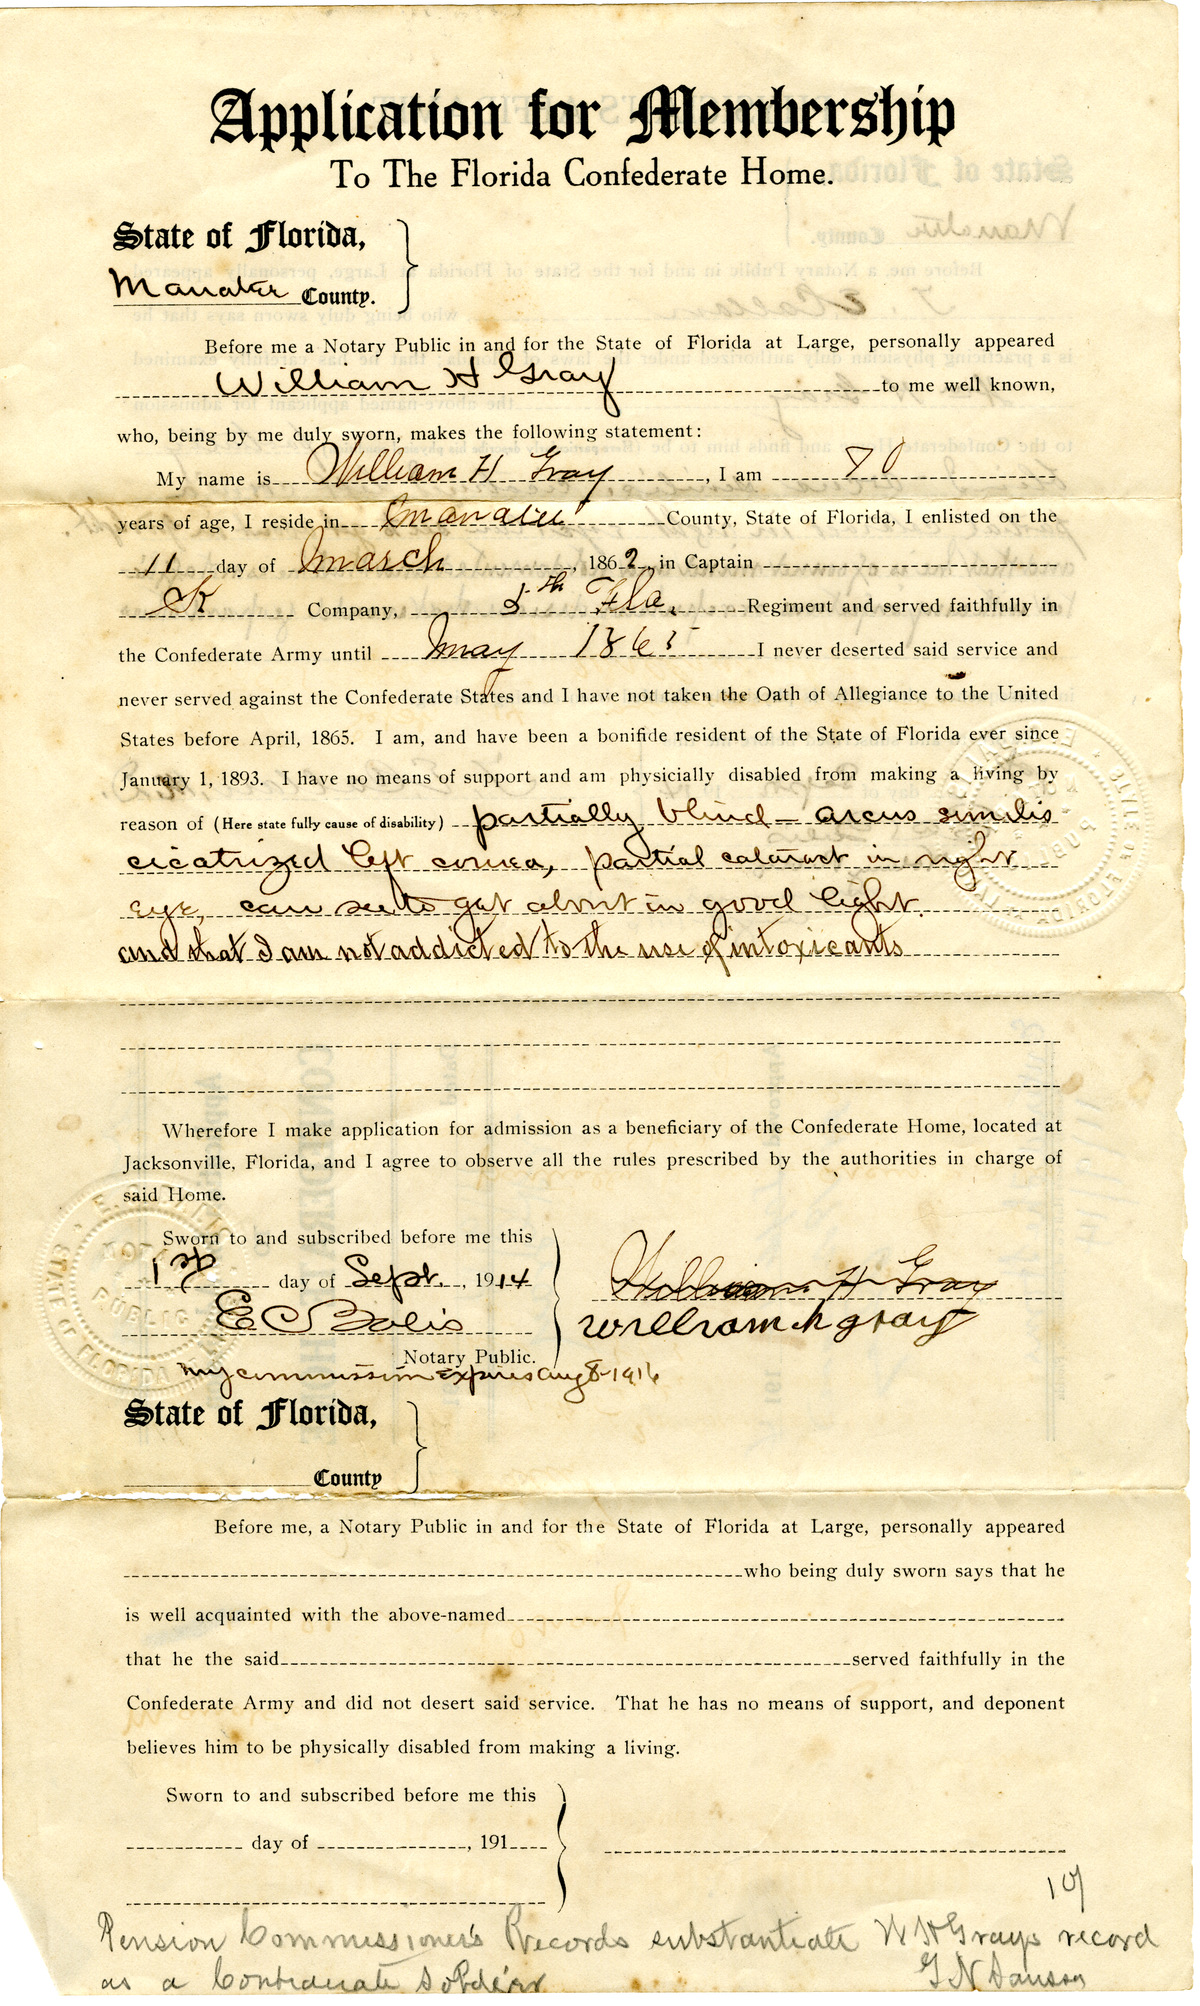 Application for Membership
To The Florida Confederate Home.
State of Florida,
Manatee County.
Before me a Notary Public in and for the State of Florida at Large, personally appeared
William H Gray to me well known,
who, being by me duly sworn, makes the following statement:
My name is William H Gray, I am 70
years of age, I reside in Manatee County, State of Florida, I enlisted on the
11 day of March, 1862, in Captain
K Company, 5th Fla. Regiment and served faithfully in
the Confederate Army until May 1865 I never deserted said service and
never served against the Confederate States and I have not taken the Oath of Allegiance to the United
States before April, 1865. I am, and have been a bonifide resident of the State of Florida ever since
January 1, 1893. I have no means of support and am physicially disabled from making a living by
reason of (Here state fully cause of disability) partially blind - arcus similis
cicatrized left cornea, partial cataract in right
eye, can see to get about in good light.
and that I am not addicted to the use of intoxicants
Wherefore I make application for admission as a beneficiary of the Confederate Home, located at
Jacksonville, Florida, and I agree to observe all the rules prescribed by the authorities in charge of
said Home.
Sworn to and subscribed before me this
1st day of Sept., 1914
William H Gray
E C Bolis
William h gray
Notary Public.
My commission Expires Aug 8-1916
State of Florida,
County
Before me, a Notary Public in and for the State of Florida at Large, personally appeared
who being duly sworn says that he
is well acquainted with the above-named
that he the said served faithfully in the
Confederate Army and did not desert said service. That he has no means of support, and deponent
believes him to be physically disabled from making a living.
Sworn to and subscribed before me this
day of , 191
Pension Commissioner's Records substantiate W H Grays record
as a Confederate Soldier